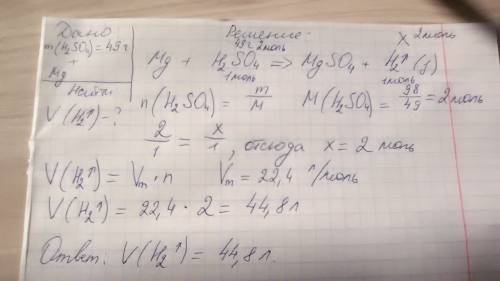 Дано
m(H₂SO₄)=49г
+
Mg
Найти
V(H₂↑)-?
Решение:
49г 2моль x 2моль
Mg + H₂SO₄ => MgSO₄ + H₂↑ (г)
1моль 1моль
n(H₂SO₄) = m/M M(H₂SO₄) = 98/49 = 2моль
2/1 = x/1, отсюда x = 2 моль
V(H₂↑) = Vm·n Vm = 22,4 л/моль
V(H₂↑) = 22,4·2 = 44,8л
Ответ: V(H₂↑) = 44,8л.